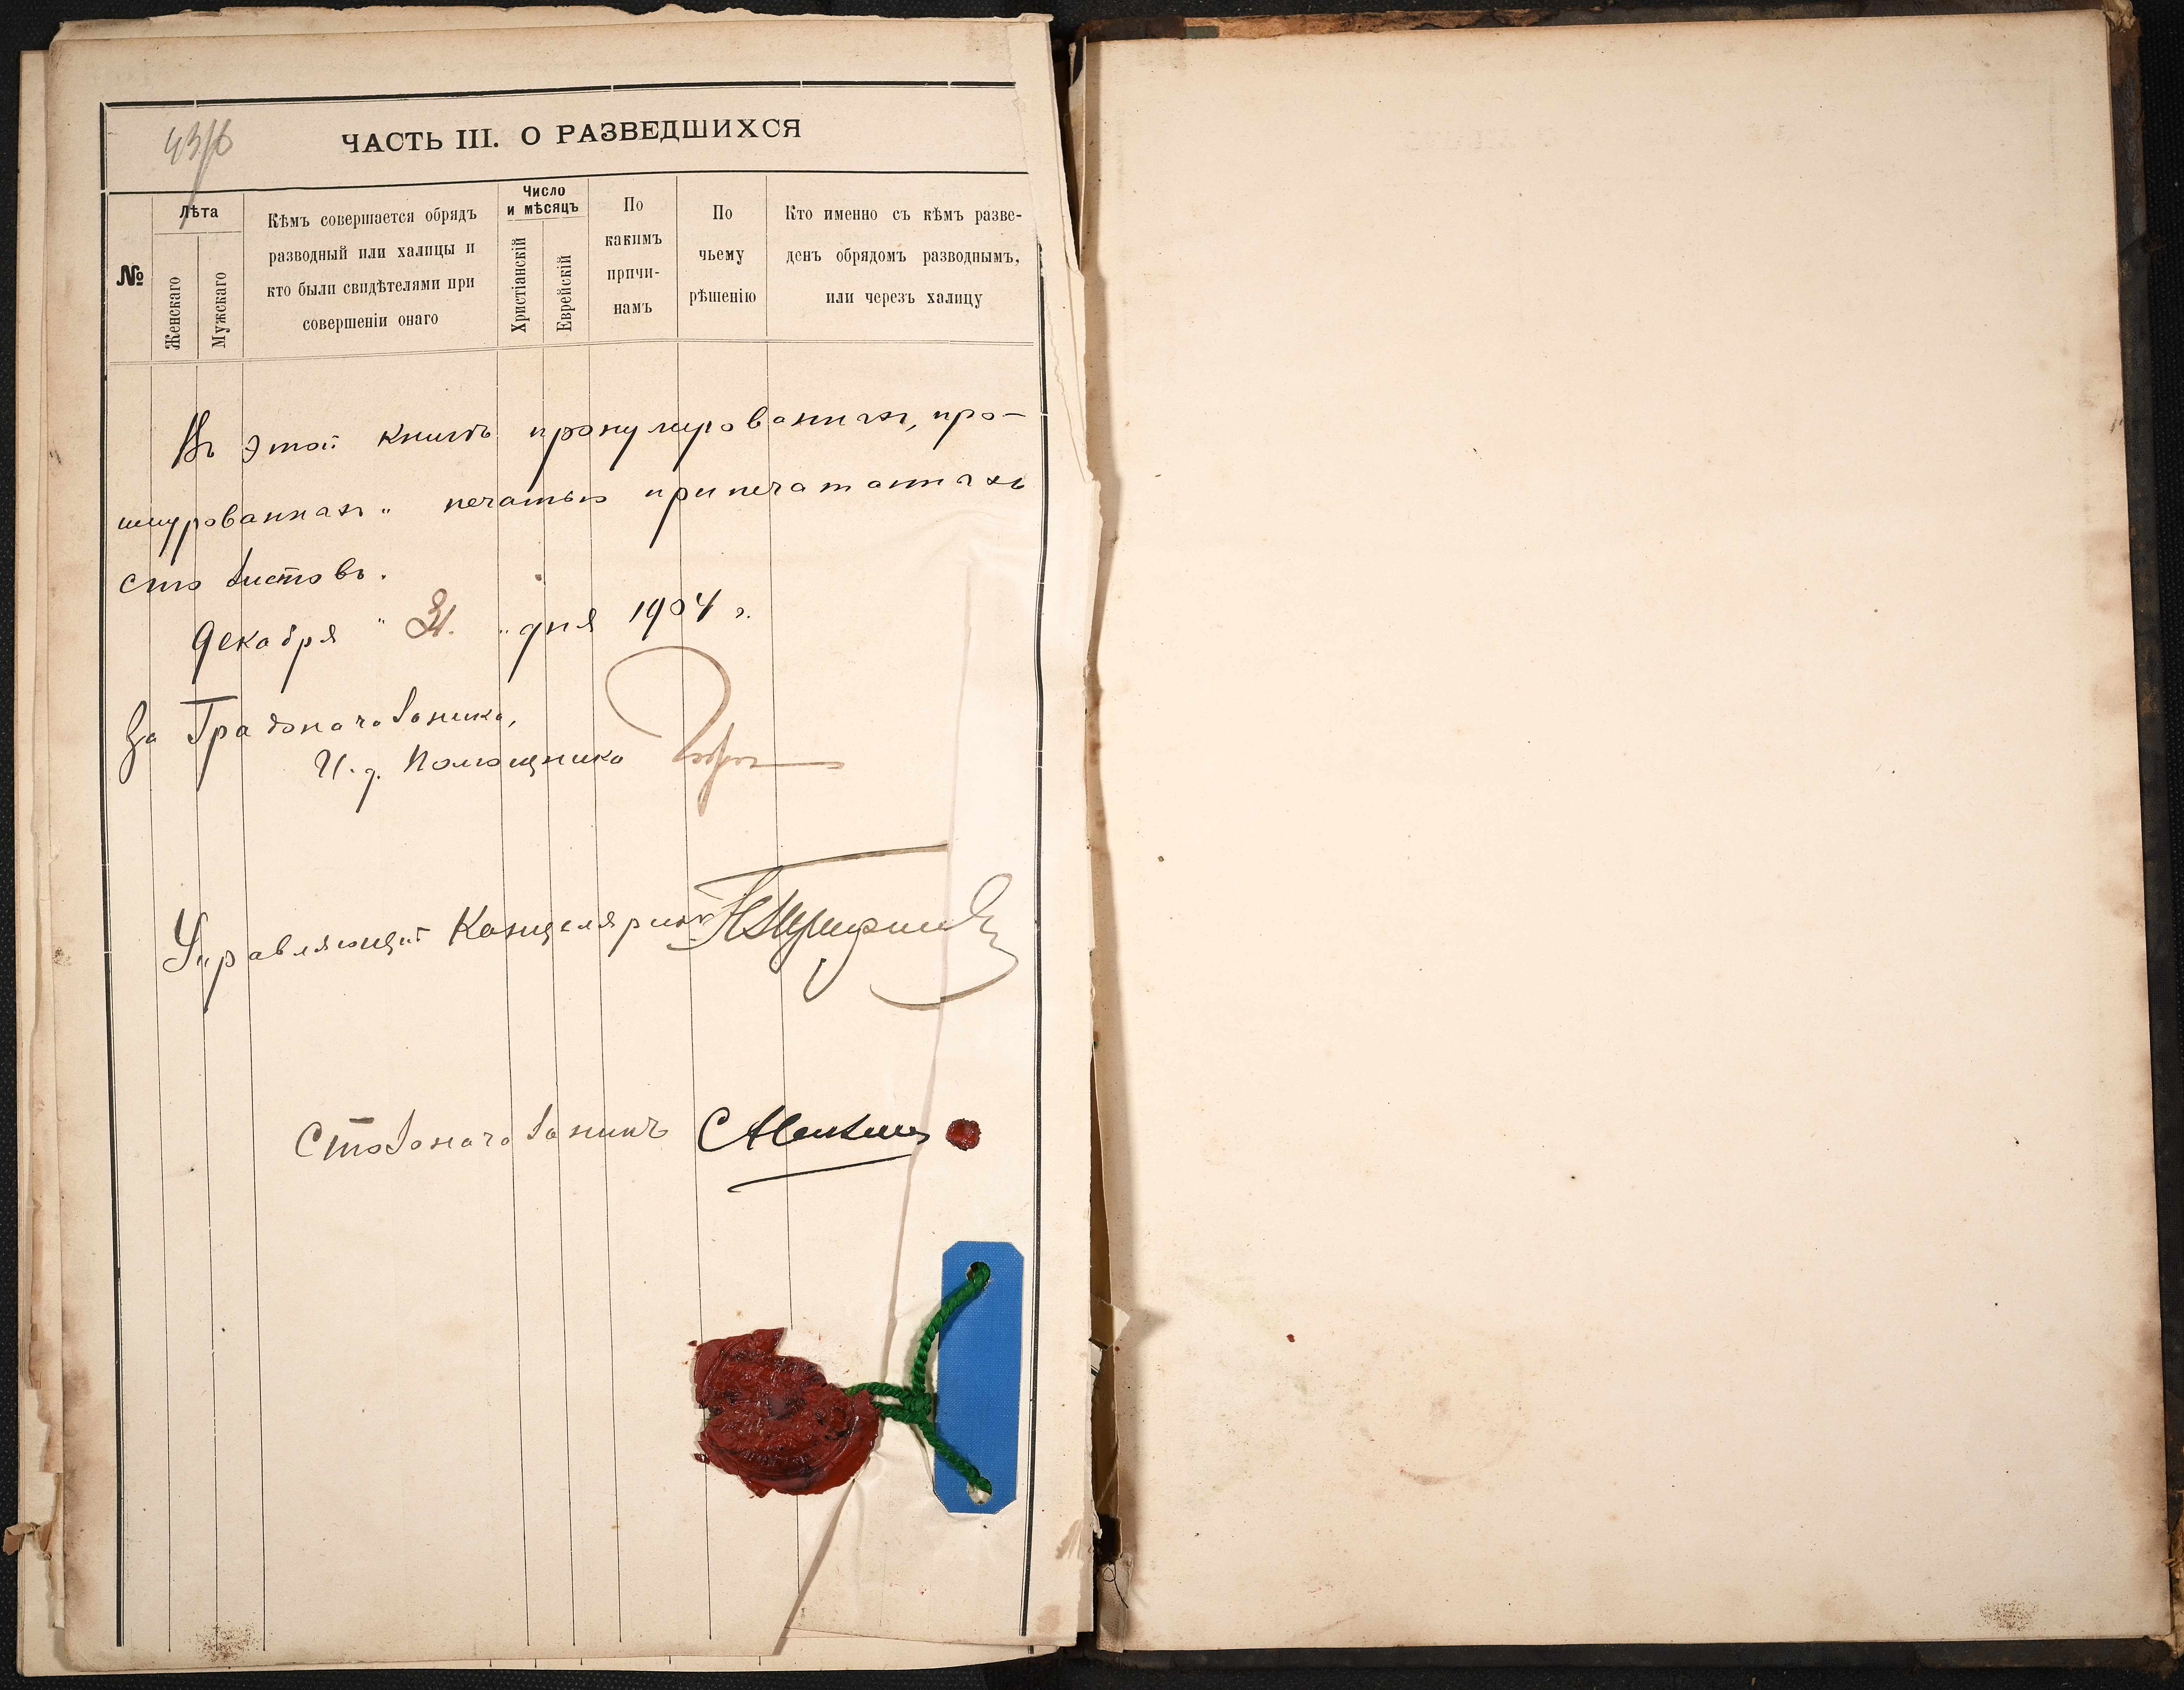 ЧАСТЬ III. О РАЗВЕДШИХСЯ
№
Лѣта
Женскаго
Мужскаго
Кѣмъ совершается обрядъ
разводный или халицы и
кто были свидѣтелями при
совершеніи онаго
Число
и мѣсяцъ
Христіанскій
Еврейскій
По
какимъ
причи-
намъ
По
чьему
рѣшенію
Кто именно съ кѣмъ разве-
денъ обрядомъ разводнымъ,
или черезъ халицу
Въ этой книгѣ пронумерованныхъ, про-
шнурованныхъ и печатью припечатанныхъ
сто листовъ.
Декабря " 31. " дня 1904 г.
За Градоначальника,
И. д. Помощника
Управляющій Канцеляріею
Столоначальникъ